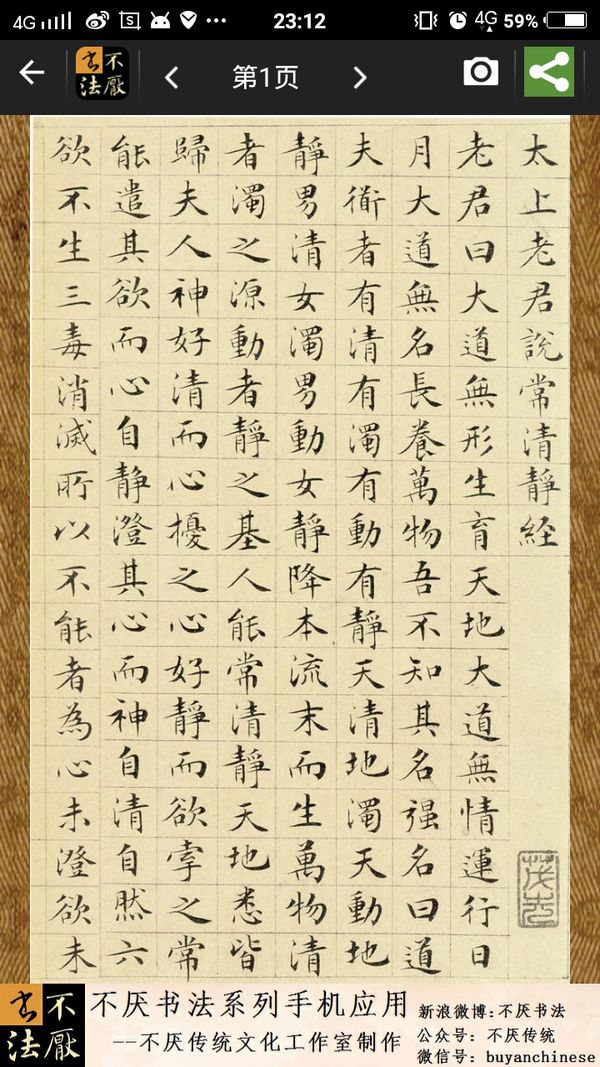 4G
23:12
4G
59%
不厭
书法
第1页
太上老君說常清靜経
老君曰大道無形生育天地大道無情運行日
月大道無名長養萬物吾不知其名强名曰道
夫衜者有清有濁有動有靜天清地濁天動地
靜男清女濁男動女靜降本流末而生萬物清
者濁之源動者靜之基人能常清靜天地悉皆
歸夫人神好清而心擾之心好靜而欲牽之常
能遣其欲而心自静澄其心而神自清自然六
欲不生三毒消滅所以不能者為心未澄欲未
不厭
书法
不厌书法系列手机应用
--不厌传统文化工作室制作
新浪微博:不厌书法
公众号: 不厌传统
微信号: buyanchinese